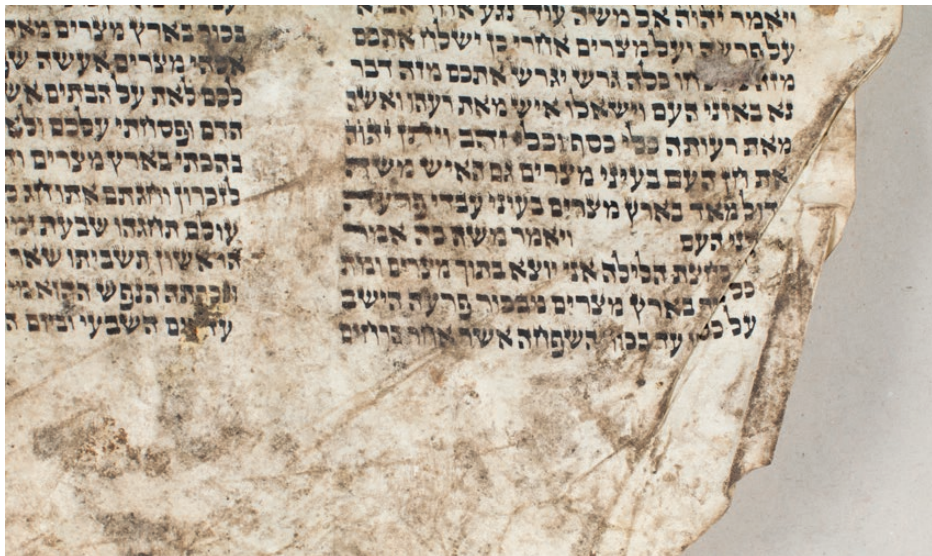 ויאמר יהוה אל משה עוד נגע אחד אביא
על פרעה ועל מצרים אחרי כן ישלח אתכם
כלה גרש יגרש אתכם מזה דבר
נא באזני העם וישאלו איש מאת רעהו ואשה
מאת רעותה כלי כסף וכלי זהב ויתן יהוה
את חן העם בעיני מצרים גם האיש משה
דול מאד בארץ מצרים בעיני עבדי פרעה
העם ויאמר משה כה אמר
כחצת הלילה אני יוצא בתוך מצרים ומת
בארץ מצרים מבכור פרעה הישב
על עד בכור השפחה אשר אחר הרחים
בכור בארץ מצרים
אלהי מצרים אעשה
לכם לאת על הבתים אש
הדם ופסחתי עלכם ולא
בהכתי בארץ מצרים
לזכרון וחגתם אתו חג
עולם תחגהו שבעת
הראשון תשביתו שאר
ונכרתה הנפש ההוא
עד יום השבעי וביום